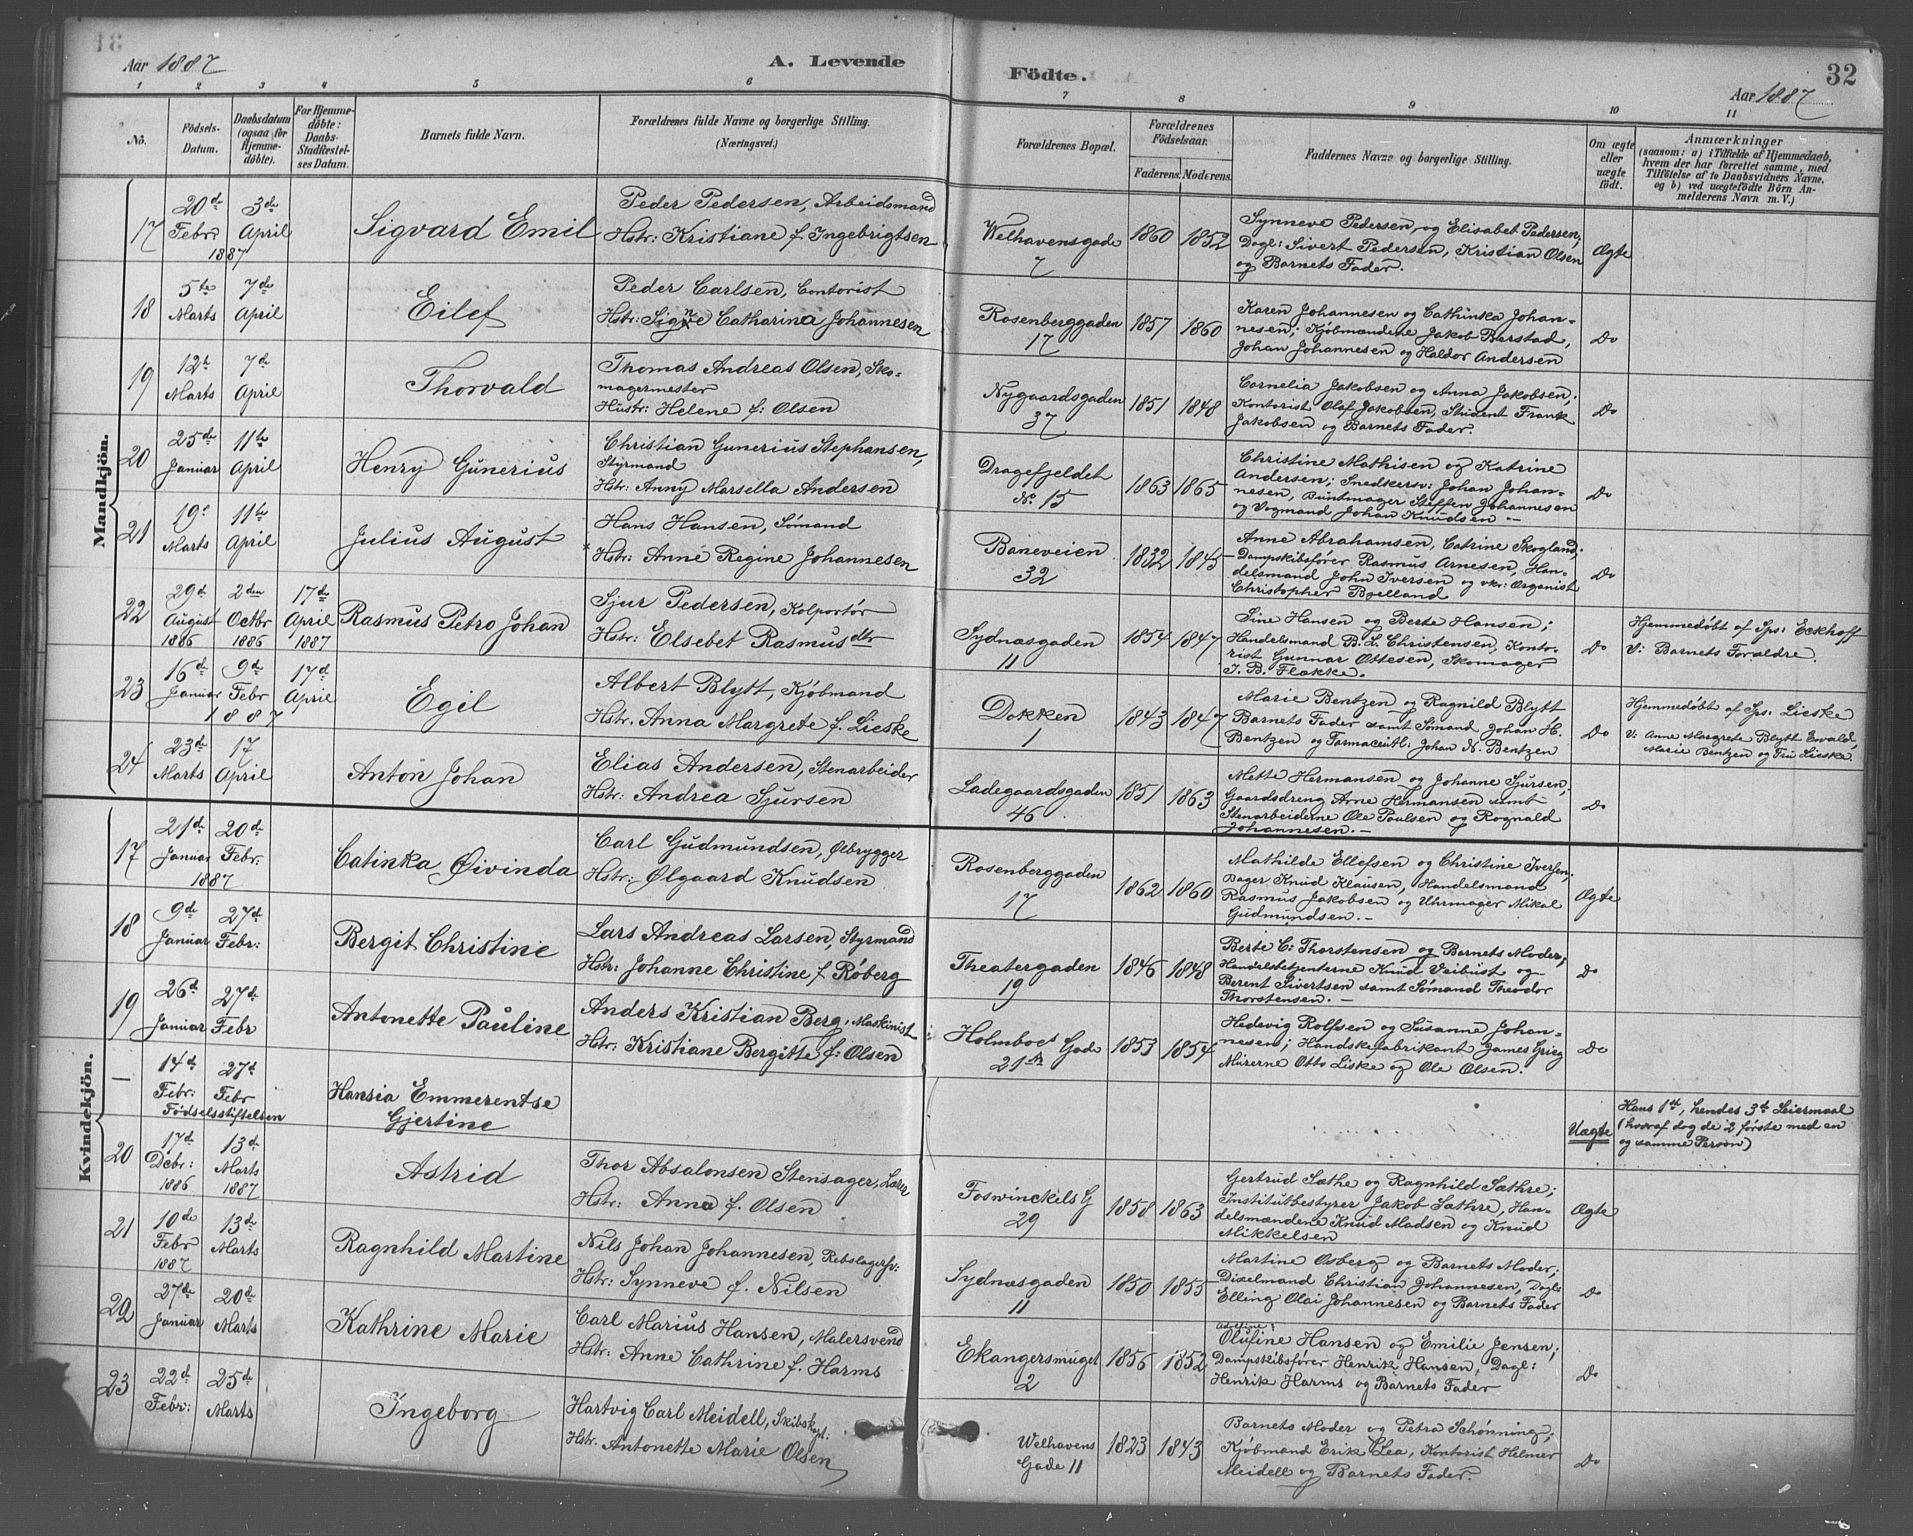 Aar 1887
A. Levende
Födte.
32
Aar 1887
1 2 3 4 5 6 7 8 9 10 11
No.
Födsels-
Datum.
Daabsdatum
(ogsaa for
Hjemme-
døbte).
For Hjemme-
døbte:
Daabs-
Stadfæstel-
ses Datum.
Barnets fulde Navn.
Forældrenes fulde Navne og borgerlige Stilling.
(Næringsvei.)
Forældrenes Bopæl.
Forældrenes
Födselsaar.
Faderens. Moderens.
Faddernes Navne og borgerlige Stilling.
Om ægte
eller
uægte
födt.
Anmærkninger
(saasom: a) i Tilfælde af Hjemmedaab,
hvem der har forrettet samme, med
Tilföielse af to Daabsvidners Navne,
og b) ved uægtefödte Börn An-
melderens Navn m. V.)
Mandkjön.
17
20de
Febr.
1887
3de
April
Sigvard Emil
Peder Pedersen, Arbeidsmand
Hstr: Kristiane f. Ingebrigtsen
Welhavensgade
7
1860 1852
Synneve Pedersen, og Elisabet Pedersen;
Dagl: Sivert Pedersen, Kristian Olsen
og Barnets Fader.
Ægte
18
5te
Marts
7de
April
Eilef
Peder Carlsen, Contorist
Hstr: Signe Catharina Johannesen
Rosenberggaden
17
1857 1860
Karen Johannesen og Cathinka Johan-
nesen; Kjøbmændene Jakob Berstad,
Johan Johannesen og Haldor Andersen
Do
19
12te
Marts
7de
April
Thorvald
Thomas Andreas Olsen, Sko-
magermester
Hustr: Helene f: Olsen
Nygaardsgaden
37
1851 1848
Cornelia Jakobsen og Anna Jakobsen;
Kontorist Olaf Jakobsen, Student Frank
Jakobsen og Barnets Fader.
Do
20
25de
Januar
11te
April
Henry Gunerius
Christian Gunerius Stephansen,
Styrmand
Hstr: Anny Marsella Andersen
Dragefjeldet
No. 15
1863 1865
Christine Mathisen og Katrine
Andersen; Snedkersv: Johan Johan-
nesen, Buntmager Steffen Johannesen
og Vogmand Johan Knudsen.-
Do
21
19e
Marts
11te
April
Julius August
Hans Hansen, Sømand
Hstr: Anne Regine Johannesen
Baneveien
32
1832 1845
Anne Abrahamsen, Catrine Skogland;
Dampskibsfører Rasmus Arnesen, Han-
delsmand John Iversen og vkr: Organist
Christopher Bjelland
Do
22
29d
August
1886
2den
Octbr
1886
17de
April
1887
Rasmus Petro Johan
Sjur Pedersen, Kolportør
Hstr: Elsebet Rasmusdtr
Sydnæsgaden
11
1854 1847
Sine Hansen og Berte Hansen;
Handelsmand B. L. Christensen, Konto-
rist Gunnar Ottesen, Skomager
J. B. Flække.
Do
Hjemmedøbt af Sps: Eckhoff
V: Barnets Forældre.
23
16de
Januar
9d
Febr
1887
17d
April
Egil
Albert Blytt, Kjøbmand
Hstr. Anna Margrete f. Lieske
Dokken
1
1843 1847
Marie Bentzen og Ragnild Blytt
Barnets Fader samt Sømand Johan H.
Bentzen og Farmaceutl: Johan N. Bentzen
Do
Hjemmedøbt af Sps: Lieske
V: Anne Margrete Blytt Ewald,
Marie Bentzen og Fru Lieske.
24
23de
Marts
17
April
Anton Johan
Elias Andersen, Stenarbeider
Hstr: Andrea Sjursen
Ladegaardsgaden
46
1851 1863
Mette Hermansen og Johanne Sjursen;
Gaardsdreng Arne Hermansen samt
Stenarbeiderne Ole Poulsen og Rognald
Johannesen.-
Do
Kvindekjön.
17
21de
Januar
1887
20de
Febr.
Catinka Øivinda
Carl Gudmundsen, Ølbrygger
Hstr: Ølgaard Knudsen
Rosenberggaden
17
1862 1860
Mathilde Ellefsen og Christine Iversen;
Bager Knud Klausen, Handelsmand
Rasmus Jakobsen og Uhrmager Mikal
Gudmundsen.-
Ægte
18
9de
Januar
27de
Febr:
Bergit Christine
Lars Andreas Larsen, Styrmand
Hstr: Johanne Christine f. Røberg
Theatergaden
19
1846 1848
Berte C: Thorstensen og Barnets Moder;
Handelsbetjenterne Knud Veibust og
Berent Sivertsen samt Sømand Theodor
Thorstensen.-
Do
19
26d
Januar
27de
Febr
Antonette Pauline
Anders Kristian Berg, Maskinist
Hstr: Kristiane Bergitte f: Olsen
Holmboes Gade
21
1853 1854
Hedevig Rolfsen og Susanne Johan-
nesen; Handskefabrikant James Grieg
Murerne Otto Liske og Ole Olsen.
Do
-
14d
Febr:
27d
Febr
Fødselsstiftelsen
Hansia Emmerentse
Gjertine
Uægte
Hans 1ste, hendes 3de Leiermaal
(hvoraf dog de 2 første med en
og samme Person)
20
17de
Decbr:
1886
13de
Marts
1887
Astrid
Thor Absalonsen Stensager, Lærer
Hstr: Anna f. Olsen
Foswinckels G
29
1858 1863
Gertrud Sæthe og Ragnhild Sæthre;
Institutbestyrer Jakob Sæthre, Han-
delsmændene Knud Madsen og Knud
Mikkelsen
Ægte
21
10de
Febr
1887
13de
Marts
Ragnhild Martine
Nils Johan Johannesen, Rebslagersv:
Hstr: Synneve f. Nilsen
Sydnæsgaden
11
1850 1855
Martine Osberg og Barnets Moder;
Dixelmand Christian Johannesen, Dagl:
Elling Olai Johannesen og Barnets Fader
Do
22
27de
Januar
20de
Marts
Kathrine Marie
Carl Marius Hansen, Malersvend
Hstr: Anne Cathrine f. Harms
Ekangersmuget
2
1856 1852
Olufine Hansen og Emilie Jensen;
Dampskibsfører Henrik Hansen, Dagl:
Henrik Harms og Barnets Fader
Do
23
22de
Febr:
25de
Marts
Ingeborg
Hartvig Carl Meidell, Skibskapt:
Hstr. Antonette Marie Olsen
Welhavens
Gade 11
1823 1843
Barnets Moder og Petra Schønning;
Kjøbmand Erik Lea, Kontorist Helmer
Meidell og Barnets Fader.
Do